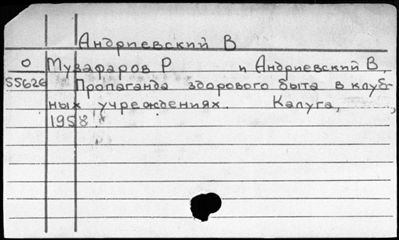 Андриевский В
О Музафаров Р и Андриевский В.
55626 Пропаганда здорового быта в клуб-
ных учреждениях. Калуга,
1958